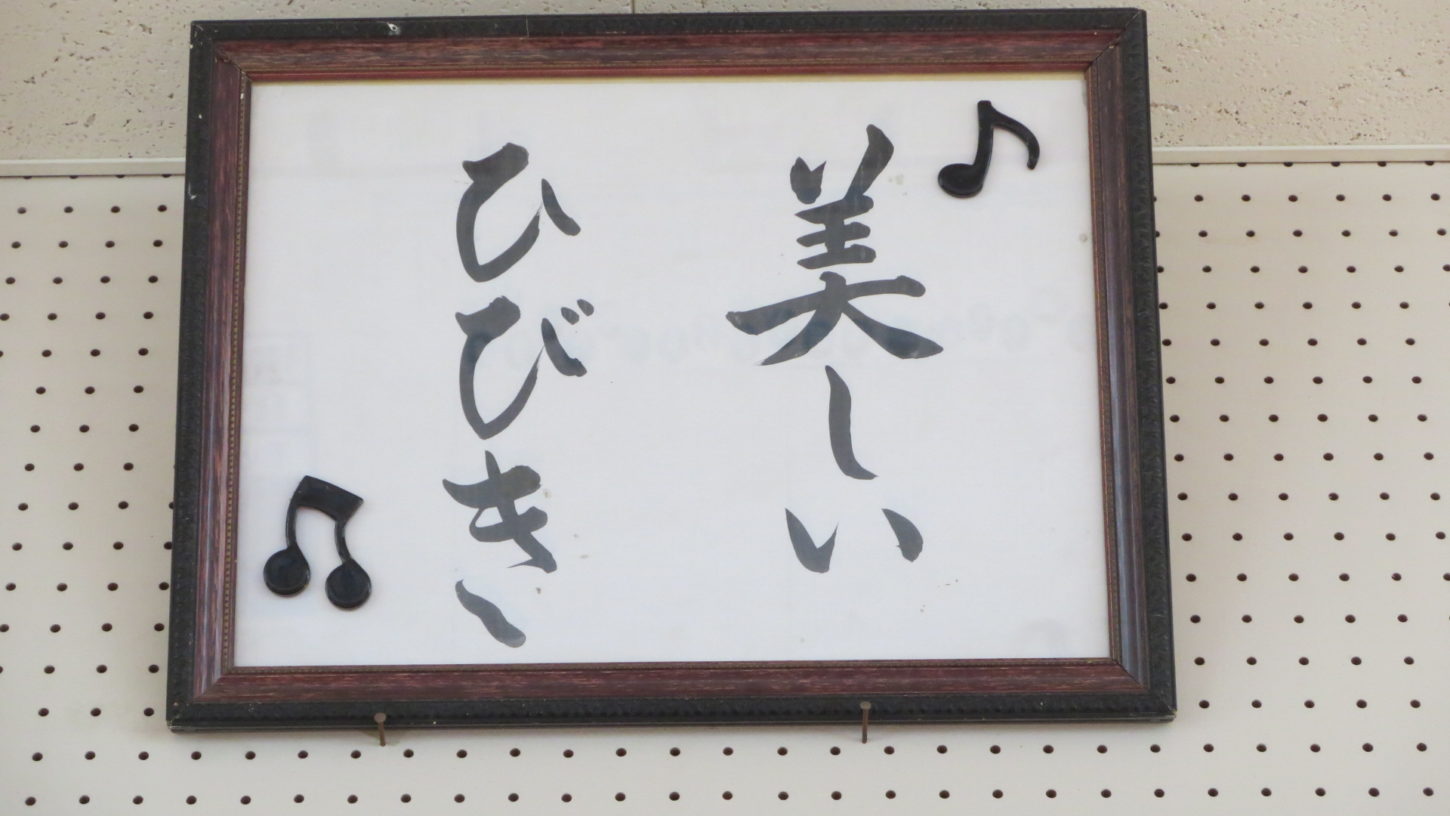 美しい
ひびき